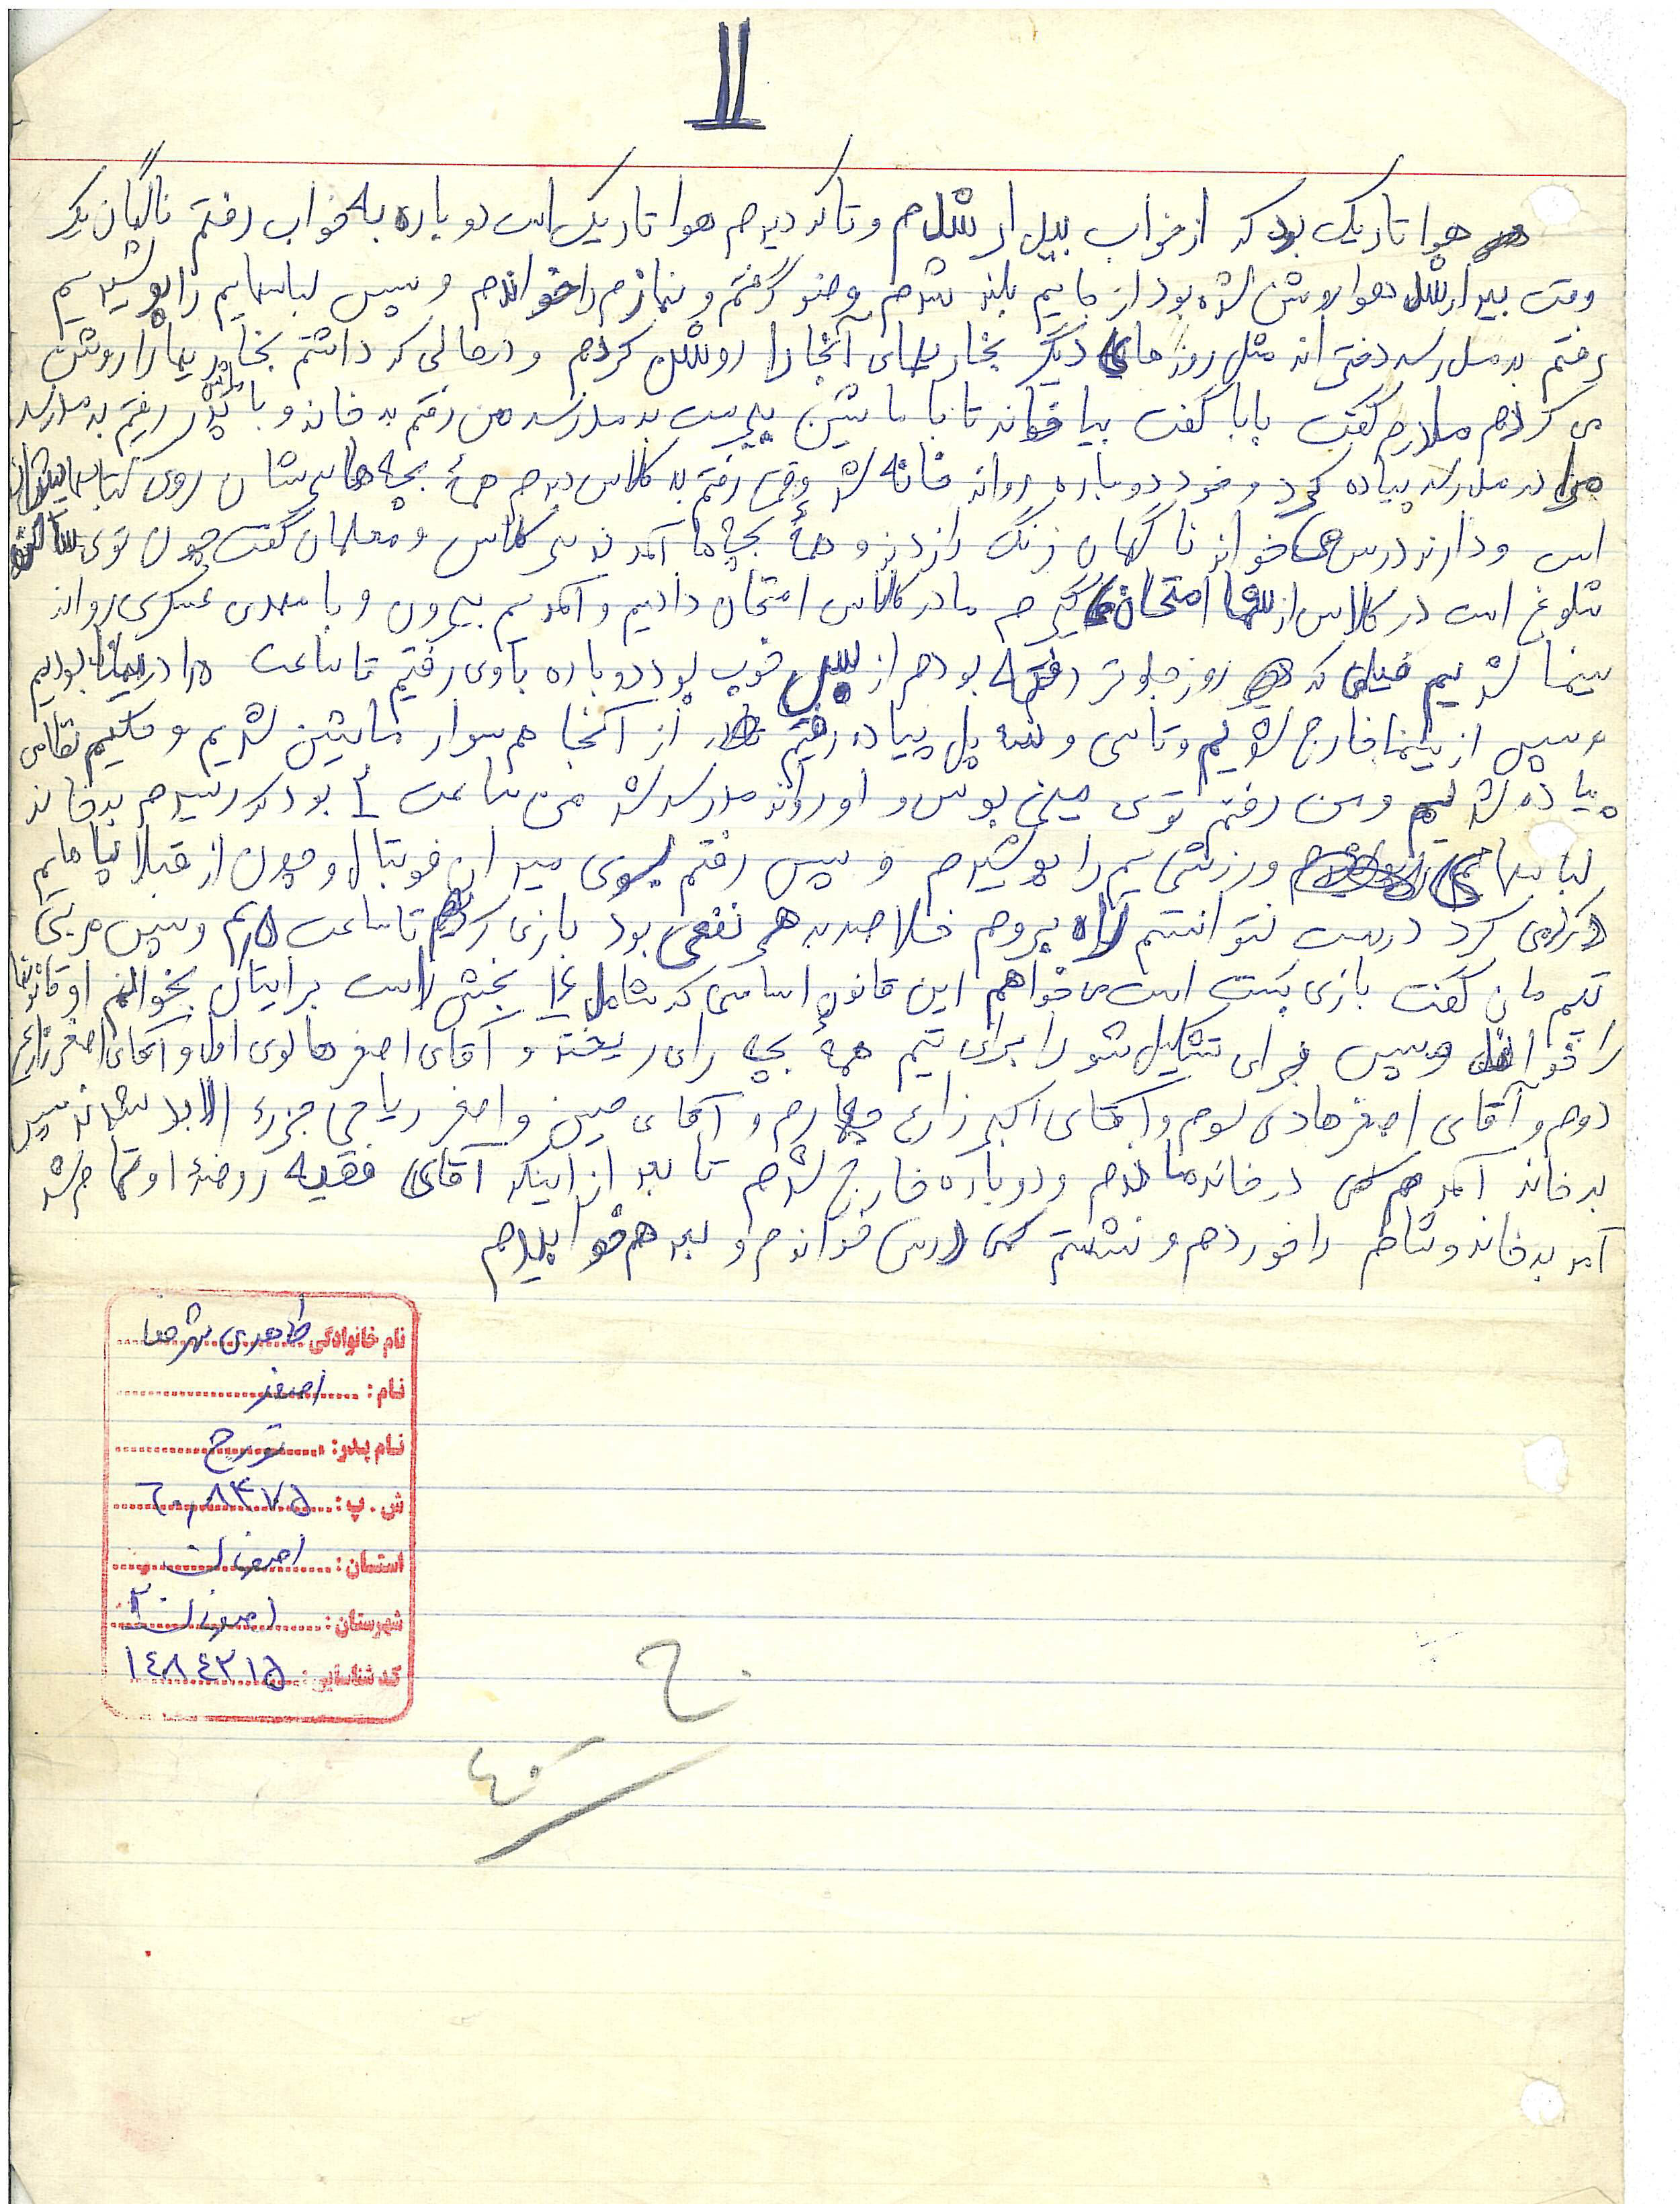 11
هوا تاریک بود که از خواب بیدار شدم و تا که دیدم هوا تاریک است دوباره به خواب رفتم ناگهان یک
وقت بیدار شدم هوا روشن شده بود از جایم بلند شدم وضو گرفتم و نمازم را خواندم و سپس لباسهایم را پوشیدیم
رفتم به مدرسه دفتی اند مثل روزهای دیگر بخاریهای آنجا را روشن کردم و درحالی که داشتم بخاریها را روشن
می کردم مادرم گفت بابا گفت بیا خانه تا با ماشین به مدرسه من رفتم به خانه و با پدر رفتم به مدرسه
مرا در مدرسه پیاده کرد و خود دوباره روانه خانه شد وقتی رفتم به کلاس دیدم همهٔ بچه ها سرشان روی کتابهایشان
است و دارند درس می خوانند ناگهان زنگ را زدند و همهٔ بچه ها آمدند سر کلاس و معلمان گفت چون توی
شلوغ است در کلاس از شما امتحان می گیرم ما در کلاس امتحان دادیم و آمدیم بیرون و با مهدی عسکری روانه
سینما شدیم فیلمی که روز جلوتر رفته بودم از بس خوب بود دوباره با وی رفتیم تا ساعت در سینما بودیم
و سپس از سینما خارج شدیم و تا سی و سه پل پیاده رفتیم از آنجا هم سوار ماشین شدیم و حکیم نظامی
پیاده شدیم و من رفتم توی مینی بوس و او روانه مدرسه شد من ساعت بود که رسیدم به خانه
لباسهای ورزشی یم را پوشیدم و سپس رفتم بسوی میدان فوتبال و چون از قبلا پاهایم
درد می کرد درست نتوانستم راه بروم خلاصه به هر نفعی بود بازی کردیم تا ساعت و سپس مربی
تیم مان گفت بازی بست است می خواهم این قانون اساسی که شامل ۱۶ بخش است برایتان بخوانم او قانونها
را خواند و سپس برای تشکیل شورا برای تیم همهٔ بچه رای ریختند و آقای اصغر هالوی اول و آقای اصغر زارع
دوم و آقای اصغر هادی سوم و آقای اکبر زارع چهارم و آقای مبین و اصغر ریاحی جزء الابدا شدند سپس
به خانه آمدم کمی در خانه ماندم و دوباره خارج شدم تا بعد از اینکه آقای فقیه روضهٔ او تمام شد
آمد به خانه و شام را خوردم و نشستم کمی درس خواندم و بعد هم خوابیدم
نام خانوادگی طاهری شرمعا
نام: اصغر
نام پدر: تورج
ش. پ: ۶۰۰۸۴۷۵
استان: اصفهان
شهرستان: اصفهان ۲
کد شناسایی: ۱۴۸۴۲۱۵